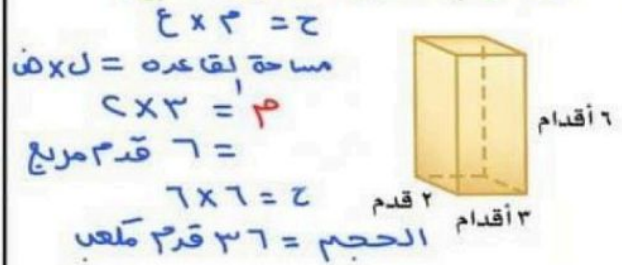 ح = م × ع
مساحة القاعده = ل × ض
م = ٣ × ٢
= ٦ قدم مربع
ح = ٦ × ٦
الحجم = ٣٦ قدم مكعب
٦ أقدام
٢ قدم
٣ أقدام